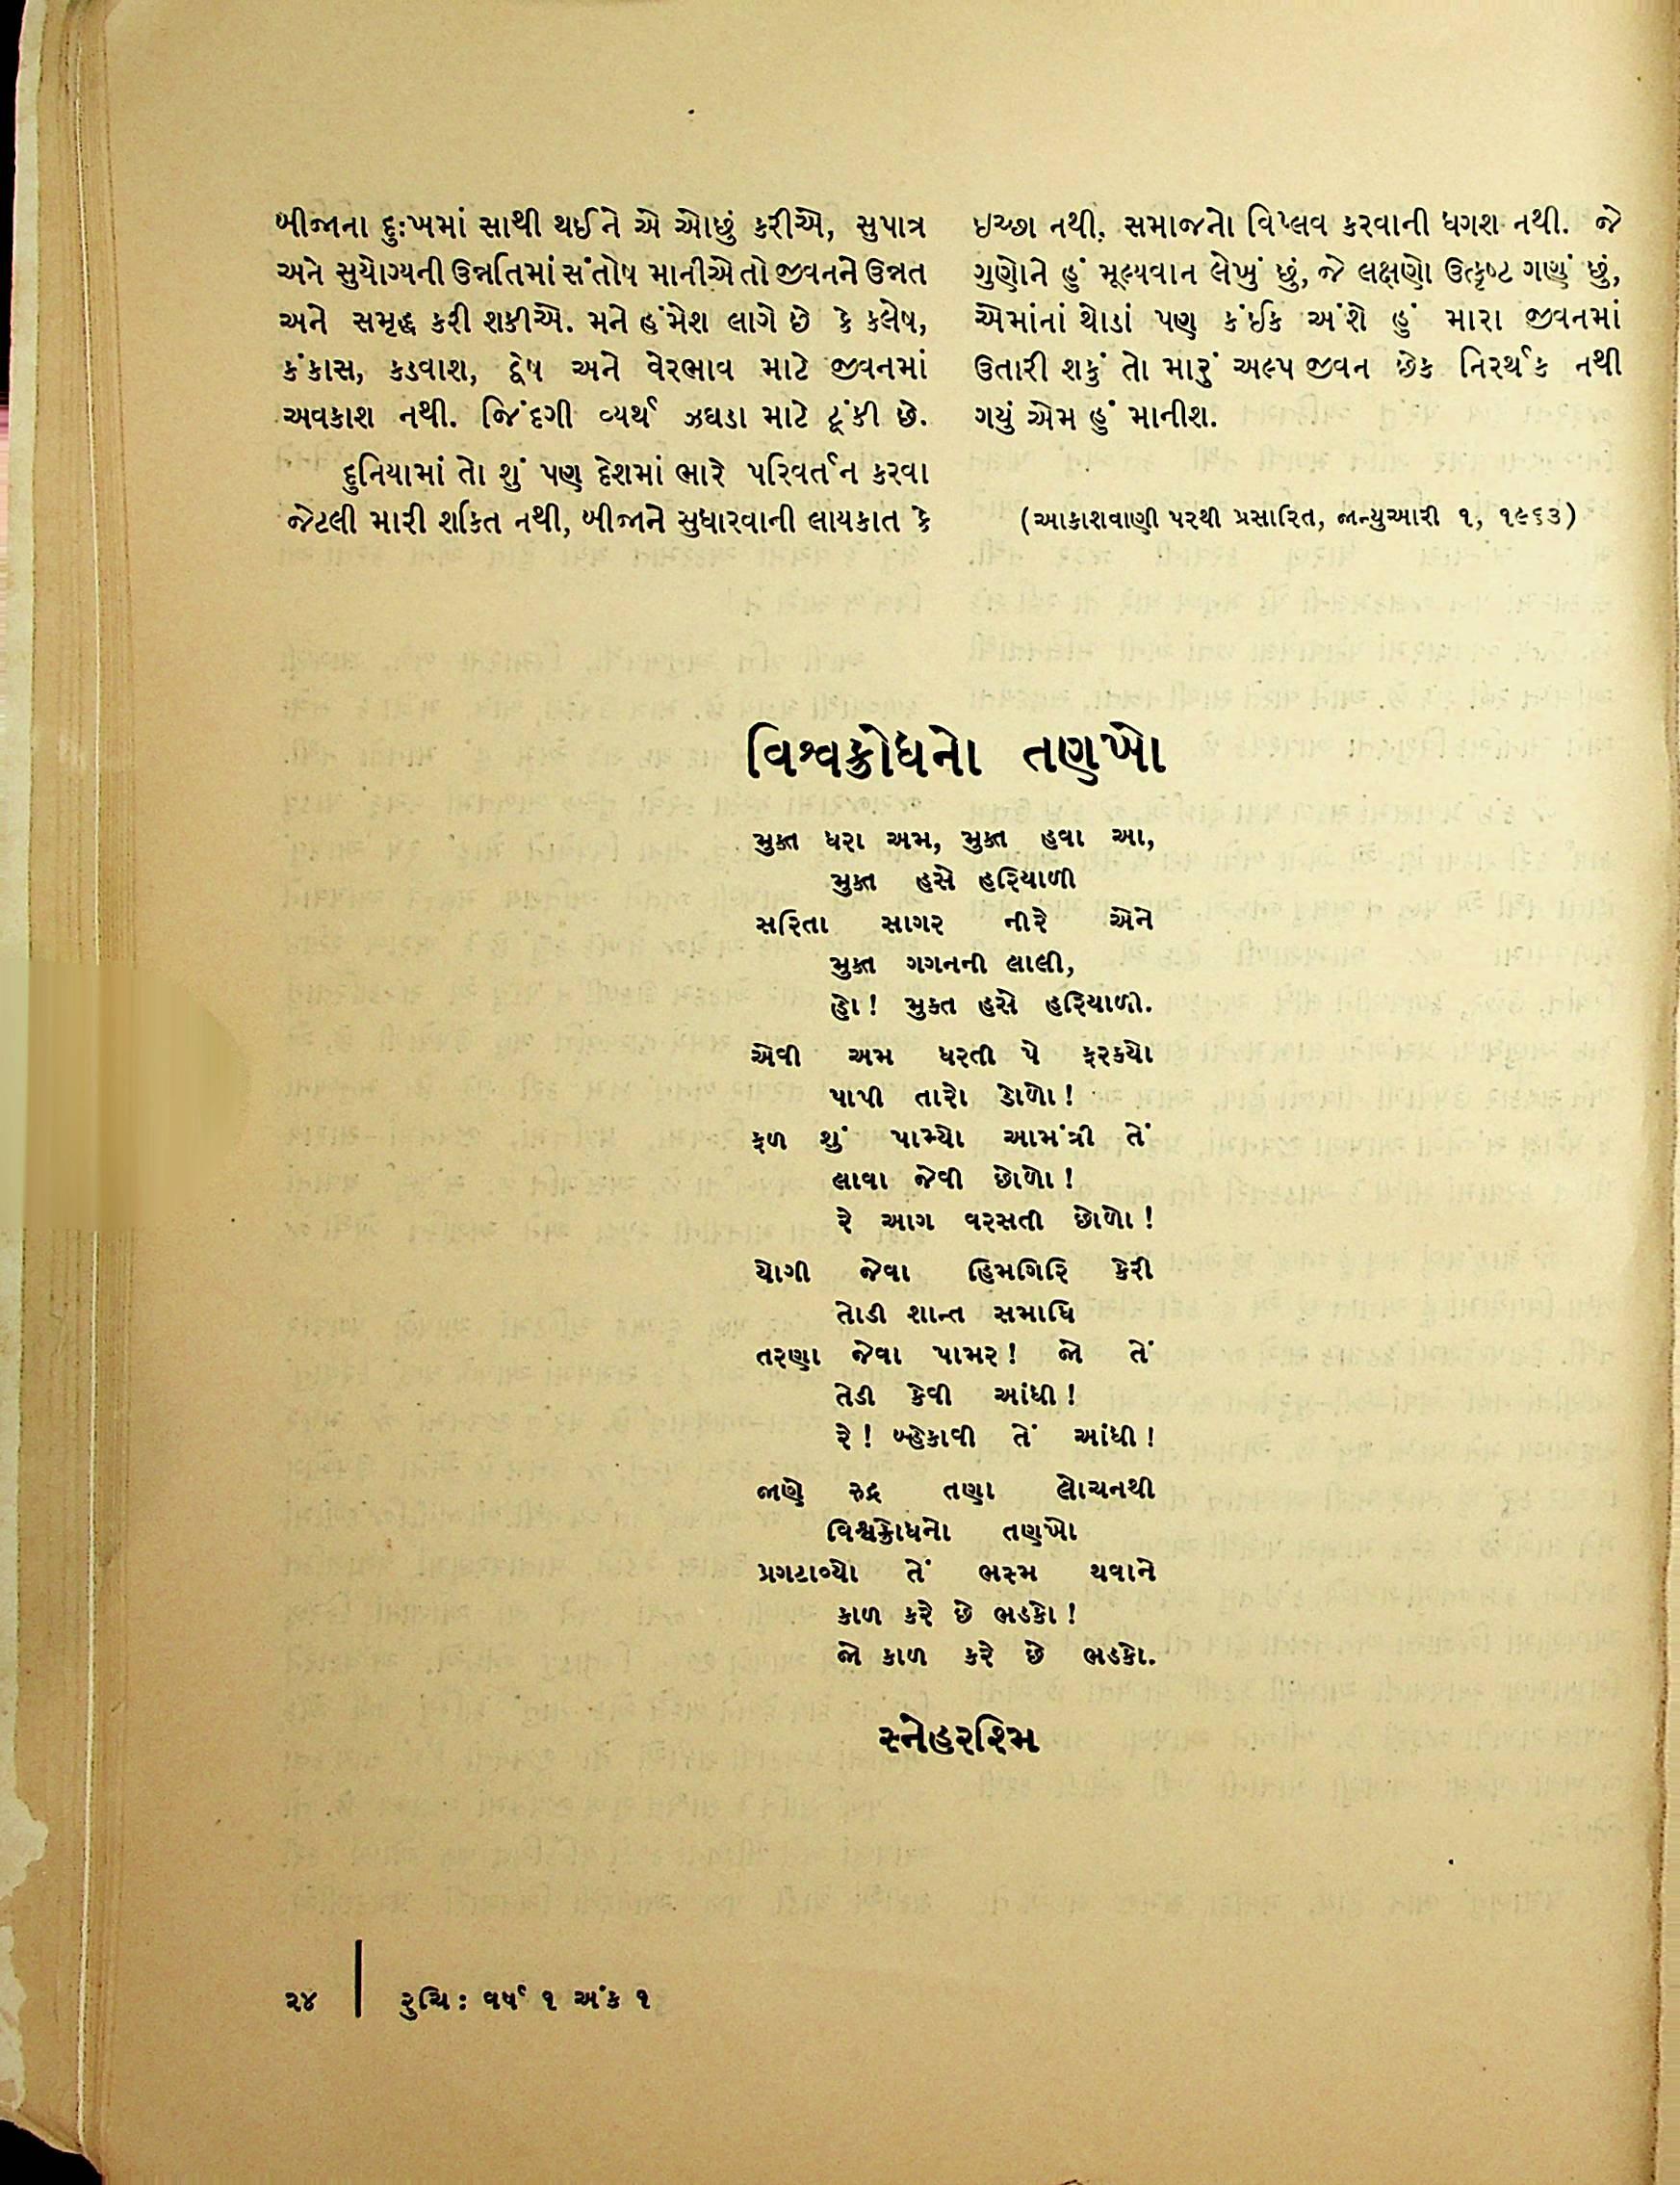 બીજાના દુઃખમાં સાથી થઈને એ ઓછું કરીએ, સુપાત્ર
અને સુયોગ્યની ઉન્નતિમાં સંતોષ માનીએ તો જીવનને ઉન્નત
અને સમૃદ્ધ કરી શકીએ. મને હંમેશ લાગે છે કે કલેષ,
કંકાસ, કડવાશ, દ્વેષ અને વેરભાવ માટે જીવનમાં
અવકાશ નથી. જિંદગી વ્યર્થ ઝઘડા માટે ટૂંકી છે.
દુનિયામાં તો શું પણ દેશમાં ભારે પરિવર્તન કરવા
જેટલી મારી શકિત નથી, બીજાને સુધારવાની લાયકાત કે
ઇચ્છા નથી, સમાજનો વિપ્લવ કરવાની ધગશ નથી. જે
ગુણોને હું મૂલ્યવાન લેખું છું, જે લક્ષણો ઉત્કૃષ્ટ ગણું છું,
એમાંનાં થોડાં પણ કંઈક અંશે હું મારા જીવનમાં
ઉતારી શકું તો મારું અલ્પ જીવન છેક નિરર્થક નથી
ગયું એમ હું માનીશ.
(આકાશવાણી પરથી પ્રસારિત, જાન્યુઆરી ૧, ૧૯૬૩)
વિશ્વક્રોધનો તણખો
મુક્ત ધરા અમ, મુક્ત હવા આ,
મુક્ત હસે હરિયાળી
સરિતા સાગર નીરે એને
મુક્ત ગગનની લાલી,
હો! મુક્ત હસે હરિયાળી.
એવી અમ ધરતી પે ફરકયો
પાપી તારો ડોળો!
ફળ શું પામ્યો આમંત્રી તેં
લાવા જેવી છોળો!
રે આગ વરસતી છોળો!
યોગી જેવા હિમગિરિ કેરી
તોડી શાન્ત સમાધિ
તરણા જેવા પામર! જો તેં
તેડી કેવી આંધી!
રે! બ્હેકાવી તેં આંધી!
જાણે રુદ્ર તણા લોચનથી
વિશ્વક્રોધનો તણખો
પ્રગટાવ્યો તેં ભસ્મ થવાને
કાળ કરે છે ભડકો!
જો કાળ કરે છે ભડકો.
સ્નેહરશ્મિ
૨૪ | રુચિ: વર્ષ ૧ અંક ૧